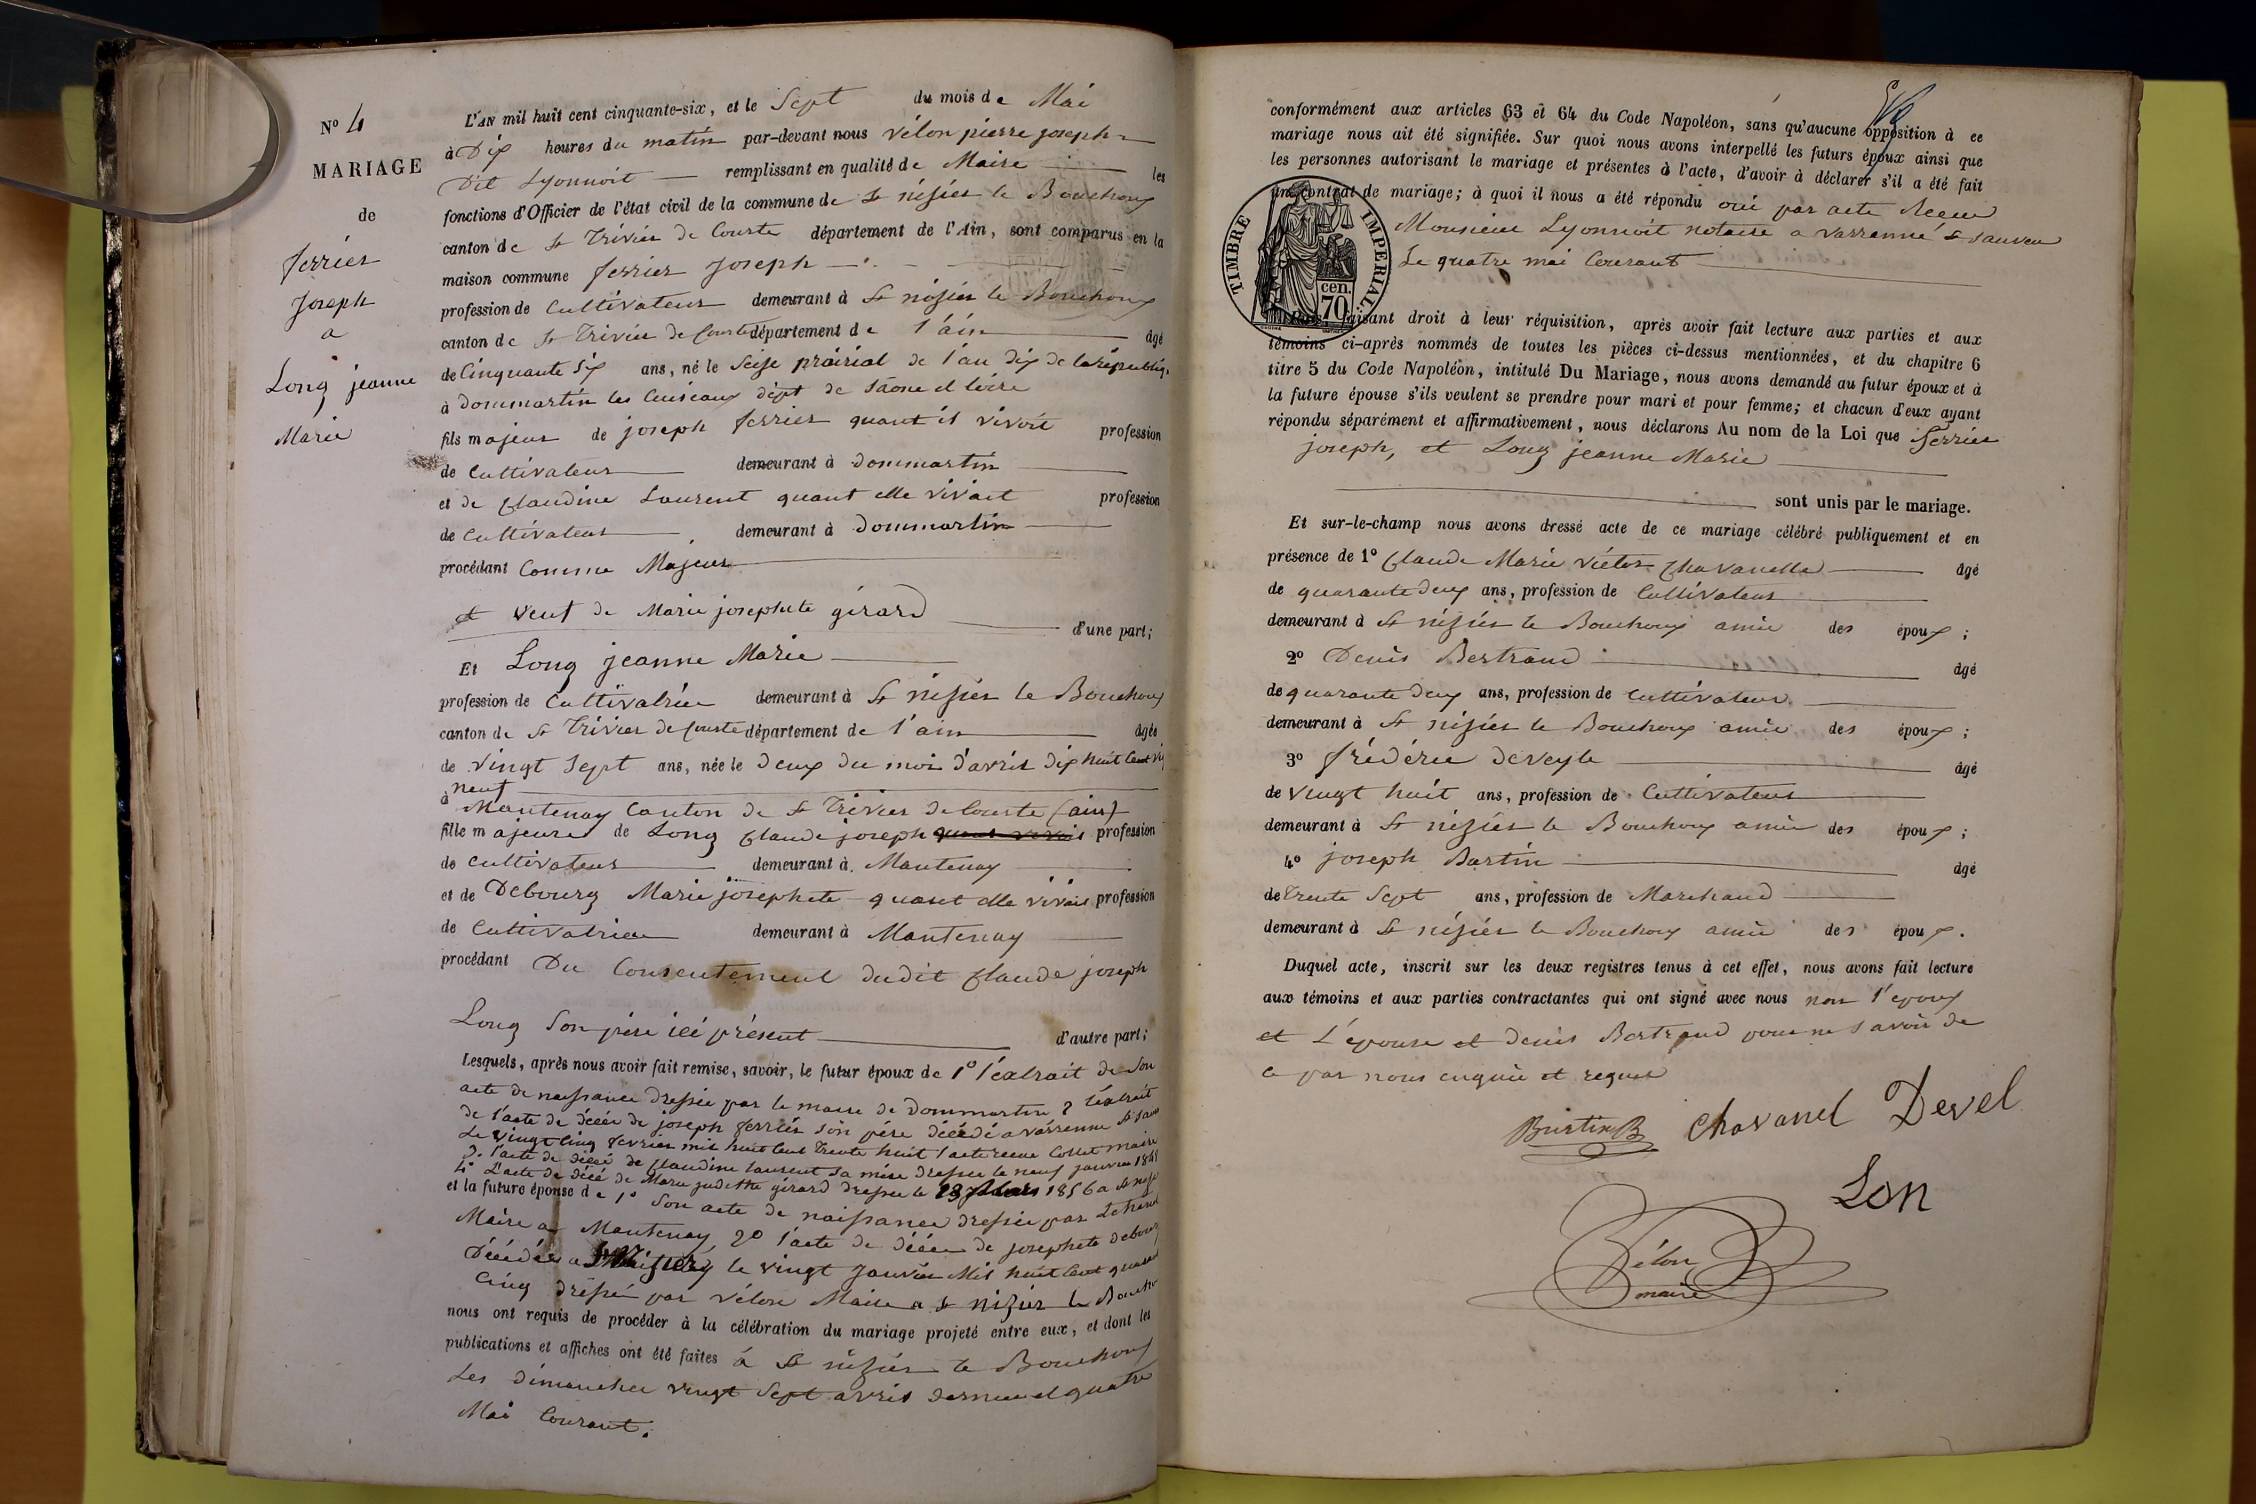 N° 4
MARIAGE
de
ferrier
Joseph
a
Long jeanne
Marie
L'AN mil huit cent cinquante-six, et le Sept du mois de Mai
à Dix heures du matin par-devant nous vélon pierre joseph
Dit Lyonnoit remplissant en qualité de Maire les
fonctions d'Officier de l'état civil de la commune de St nésier le Bouchoux
canton de St Trivier de Courte département de l'Ain, sont comparus en la
maison commune ferrier Joseph
profession de Cultivateur demeurant à St nésier le Bouchoux
canton de St Trivier de Courte département de l'ain âgé
de Cinquante Six ans, né le Seise prairial de l'an dix de la républiq
à Dommartin les Cuiseaux dépt de Saone et loire
fils majeur de joseph ferrier quant il vivoit profession
de Cultivateur demeurant à Dommartin
et de Claudine Laurent quant elle vivait profession
de Cultivateur demeurant à Dommartin
procédant Comme Majeur
et veuf de Marie josephete gérard d'une part;
Et Long jeanne Marie
profession de Cultivatrice demeurant à St nésier le Bouchoux
canton de St Trivier de Courte département de l'ain âgée
de vingt Sept ans, née le Deux du moi d'avril dix huit Cent vi
neuf
à Mantenay Canton de St Trivier de Courte (ain)
fille majeure de Long Claude joseph profession
de Cultivateur demeurant à Mantenay
et de Debourg Marie josephete quant elle vivais profession
de Cultivatrice demeurant à Mantenay
procédant Du Consentement dudit Claude joseph
Long Son père ici présent d'autre part;
Lesquels, après nous avoir fait remise, savoir, le futur époux de 1° l'extrait de Son
acte de naissance dressée par le maire de Dommartin 2 l'extrait
de l'acte de décée de joseph ferrier Son père décédé a varrenne St Sauv
Le vingt Cinq fevrier mil huit Cent Trente huit l'acte recue Collet maire
3° l'acte de décée de Claudine Laurent Sa mère dressée le neuf janvier
4° L'acte de décé de Marie gérard dressee le 23 1856 a St
et la future épouse de 1° Son acte de naissance dressée par
Maire a Mantenay 2° l'acte de décée de josephete debour
Décédée a le vingt janvier Mil huit Cent
Cinq dressé par vélon Maire a St nizier le Boucho
nous ont requis de procéder à la célébration du mariage projeté entre eux, et dont les
publications et affiches ont été faites à St nésier le Bouchoux
Les dimanches vingt Sept avril dernier et quatre
Mai Courant.
conformément aux articles 63 et 64 du Code Napoléon, sans qu'aucune opposition à ce
mariage nous ait été signifiée. Sur quoi nous avons interpellé les futurs époux ainsi que
les personnes autorisant le mariage et présentes à l'acte, d'avoir à déclarer s'il a été fait
un contrat de mariage; à quoi il nous a été répondu oui par acte Recue
Monsieur Lyonnoit notaire a varrenne St sauveu
Le quatre mai Courant
TIMBRE IMPERIAL.
cen.
70
Puis, faisant droit à leur réquisition, après avoir fait lecture aux parties et aux
témoins ci-après nommés de toutes les pièces ci-dessus mentionnées, et du chapitre 6
titre 5 du Code Napoléon, intitulé Du Mariage, nous avons demandé au futur époux et à
la future épouse s'ils veulent se prendre pour mari et pour femme; et chacun d'eux ayant
répondu séparément et affirmativement, nous déclarons Au nom de la Loi que ferrier
joseph, et Long jeanne Marie
sont unis par le mariage.
Et sur-le-champ nous avons dressé acte de ce mariage célébré publiquement et en
présence de 1° Claude Marie victor Chavanelle âgé
de quarante deux ans, profession de Cultivateur
demeurant à St nésier le Bouchoux amie des époux;
2° Denis Bertrand âgé
de quarante deux ans, profession de Cultivateur
demeurant à St nisier le Bouchoux amie des époux;
3° frédéric deveyle âgé
de vingt huit ans, profession de Cultivateur
demeurant à St nizier le Bouchoux amie des époux;
4° joseph Burtin âgé
de trente Sept ans, profession de Marchand
demeurant à St nésier le Bouchoux amie des époux.
Duquel acte, inscrit sur les deux registres tenus à cet effet, nous avons fait lecture
aux témoins et aux parties contractantes qui ont signé avec nous non l'epoux
et L'épouse et denis Bertrand pour ne Savoir de
ce par nous enquie et requis
Burtin B Chavanel Devel
Lon
Vélon
maire